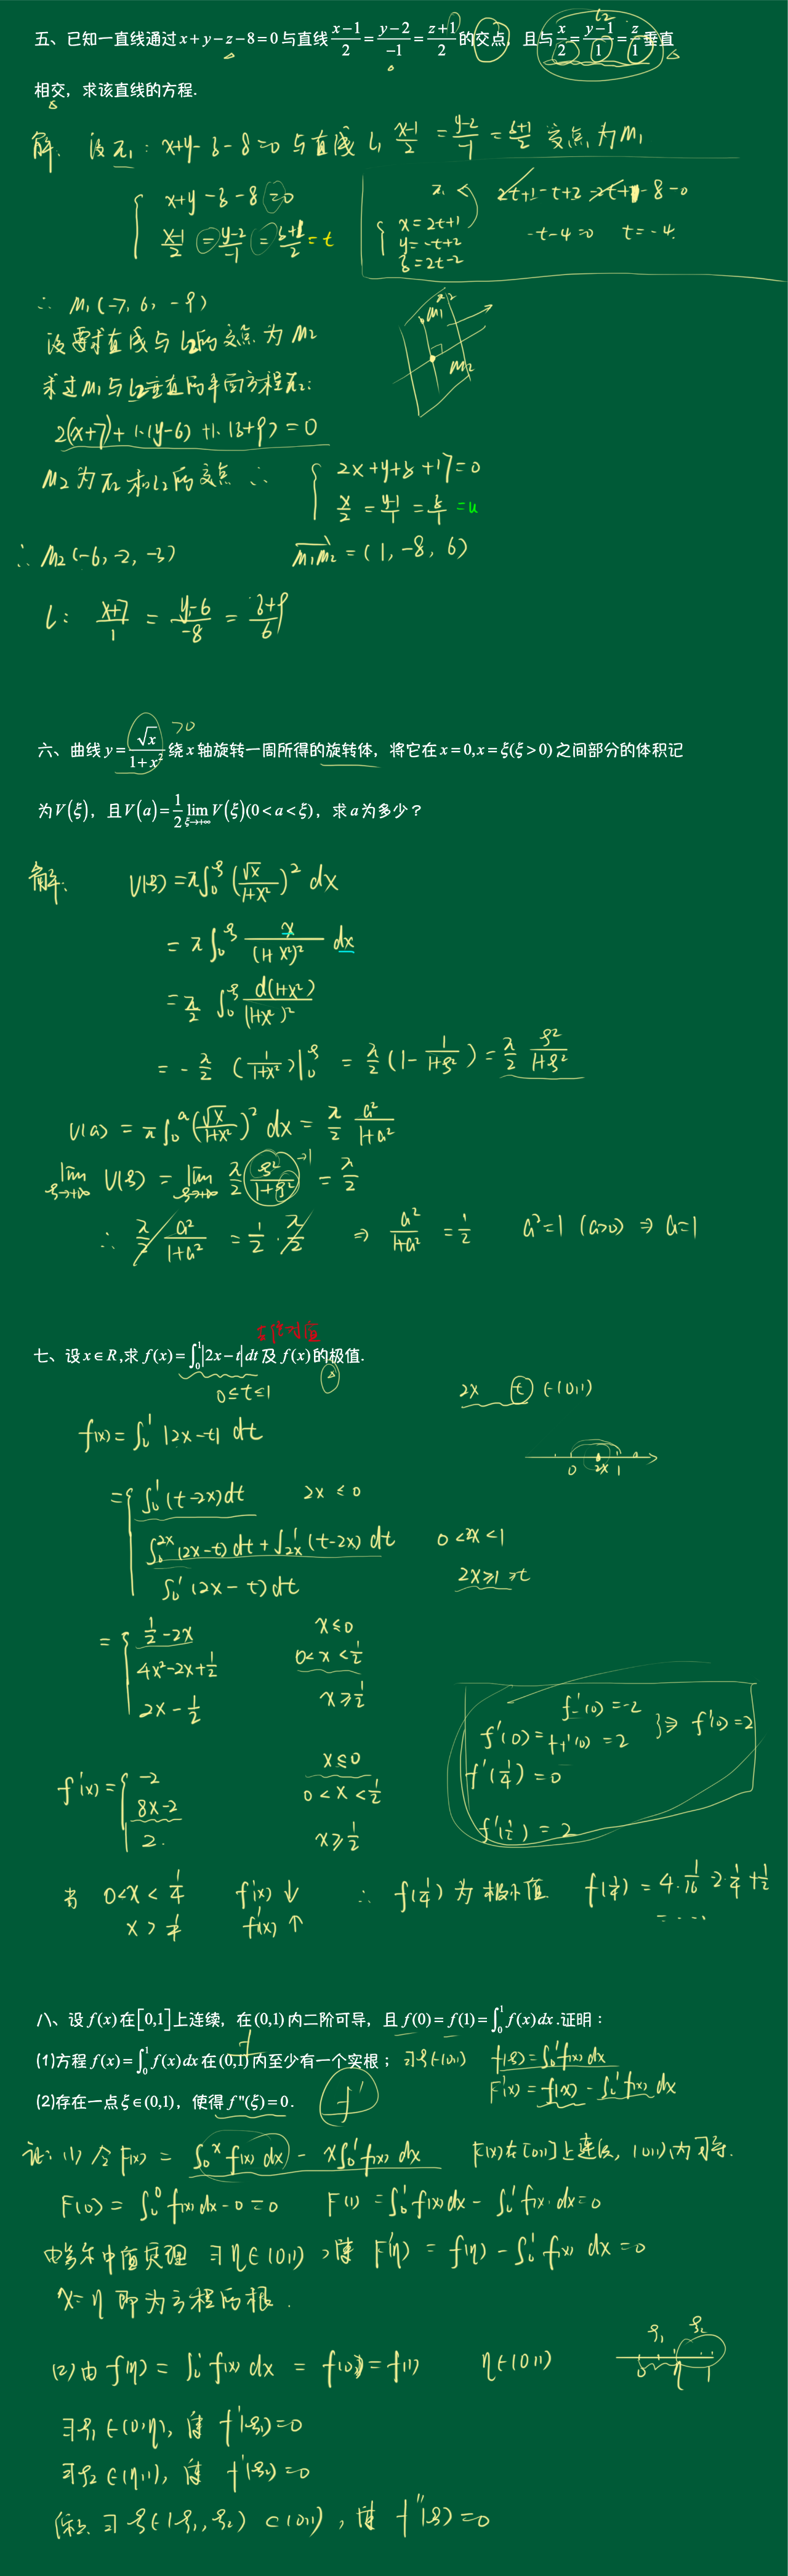 五、已知一直线通过x+y−z−8=0与直线(x−1)/2=(y−2)/−1=(z+1)/2的交点，且与x/2=(y−1)/1=z/1垂直
相交，求该直线的方程.
解: 设π₁: x+y−z−8=0 与直线 L₁ (x−1)/2=(y−2)/−1=(z+1)/2 交点为M₁
{ x+y−z−8=0
(x−1)/2=(y−2)/−1=(z+1)/2=t
2t+1−t+2−2t+1−8=0
{ x=2t+1
y=−t+2
z=2t−2
−t−4=0 t=−4.
∴ M₁(−7, 6, −9)
设要求直线与L₂的交点为M₂
求过M₁与L₂垂直的平面方程π₂:
2(x+7)+1·(y−6)+1·(z+9)=0
M₂为π₂和L₂的交点 ∴ { 2x+y+z+17=0
x/2=(y−1)/1=z/1=u
∴ M₂(−6, −2, −3) M₁M₂=(1, −8, 6)
L: (x+7)/1=(y−6)/−8=(z+9)/6
六、曲线y=√x/(1+x²)绕x轴旋转一周所得的旋转体，将它在x=0,x=ξ(ξ>0)之间部分的体积记
>0
为V(ξ)，且V(a)=1/2 lim ξ→+∞ V(ξ)(0<a<ξ)，求a为多少？
解: V(ξ)=π∫₀^ξ (√x/(1+x²))² dx
=π∫₀^ξ x/(1+x²)² dx
=π/2 ∫₀^ξ d(1+x²)/(1+x²)²
=−π/2 (1/(1+x²))|₀^ξ = π/2 (1−1/(1+ξ²)) = π/2 ξ²/(1+ξ²)
V(a)=π∫₀^a (√x/(1+x²))² dx = π/2 a²/(1+a²)
lim ξ→+∞ V(ξ)=lim ξ→+∞ π/2 ξ²/(1+ξ²) →1 = π/2
∴ π/2 a²/(1+a²)=1/2·π/2 ⇒ a²/(1+a²)=1/2 a²=1 (a>0) ⇒ a=1
去绝对值
七、设x∈R,求f(x)=∫₀¹|2x−t|dt及f(x)的极值.
0≤t≤1
2x t∈(0,1)
f(x)=∫₀¹|2x−t| dt
0 2x 1
={ ∫₀¹(t−2x)dt 2x≤0
∫₀^2x(2x−t)dt+∫_2x^1(t−2x)dt 0<2x<1
∫₀¹(2x−t)dt 2x≥1≥t
={ 1/2−2x x≤0
4x²−2x+1/2 0<x<1/2
2x−1/2 x≥1/2
f₋'(0)=−2
f'(0)= f₊'(0)=2 } ⇒ f'(0)=2
f'(1/4)=0
f'(1/2)=2
f'(x)={ −2 x≤0
8x−2 0<x<1/2
2. x≥1/2
当 0<x<1/4 f(x)↓ ∴ f(1/4)为极小值 f(1/4)=4·1/16−2·1/4+1/2
x>1/4 f(x)↑ =····
八、设f(x)在[0,1]上连续，在(0,1)内二阶可导，且f(0)=f(1)=∫₀¹f(x)dx.证明：
(1)方程f(x)=∫₀¹f(x)dx在(0,1)内至少有一个实根； ∃ξ∈(0,1) f(ξ)=∫₀¹f(x)dx
F'(x)=f(x)−∫₀¹f(x)dx
(2)存在一点ξ∈(0,1)，使得f''(ξ)=0. f'
证: (1) 令F(x)=∫₀^x f(x)dx − x∫₀¹f(x)dx F(x)在[0,1]上连续, (0,1)内可导.
F(0)=∫₀⁰f(x)dx−0=0 F(1)=∫₀¹f(x)dx−∫₀¹f(x)dx=0
由罗尔中值定理 ∃η∈(0,1), 使 F'(η)=f(η)−∫₀¹f(x)dx=0
x=η 即为方程的根.
(2) 由f(η)=∫₀¹f(x)dx=f(0)=f(1) η∈(0,1)
ξ₁ ξ₂
0 η 1
∃ξ₁∈(0,η), 使 f'(ξ₁)=0
∃ξ₂∈(η,1), 使 f'(ξ₂)=0
∃ξ∈(ξ₁,ξ₂)⊂(0,1), 使 f''(ξ)=0